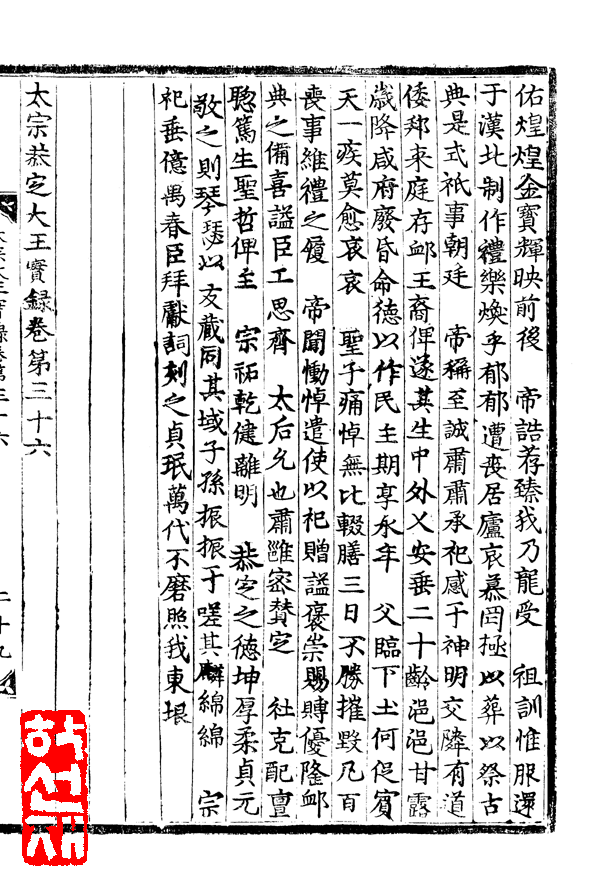 佑煌煌金寶輝映前後　帝誥荐臻我乃龍受　祖訓惟服還
于漢北制作禮樂煥乎郁郁遭喪居廬哀慕罔極以葬以祭古
典是式祇事朝廷　帝稱至誠肅肅承祀感于神明交隣有道
倭邦來庭存卹王裔俾遂其生中外乂安垂二十齡浥浥甘露
歲降咸府廢昏命德以作民主期享永年　父臨下土何促賓
天一疾莫愈哀哀　聖子痛悼無比輟膳三日不勝摧毀凡百
喪事維禮之履　帝聞慟悼遣使以祀贈謚褒崇賜賻優隆卹
典之備喜謚臣工思齊　太后允也肅雝密贊定　社克配亶
聦篤生聖哲俾主　宗祏乾健離明　恭定之德坤厚柔貞元
敬之則琴瑟以友葴同其域子孫振振于嗟其麟綿綿　宗
祀垂億萬春臣拜獻詞刻之貞珉萬代不磨照我東垠
太宗恭定大王實錄卷第三十六
二十九
하선재